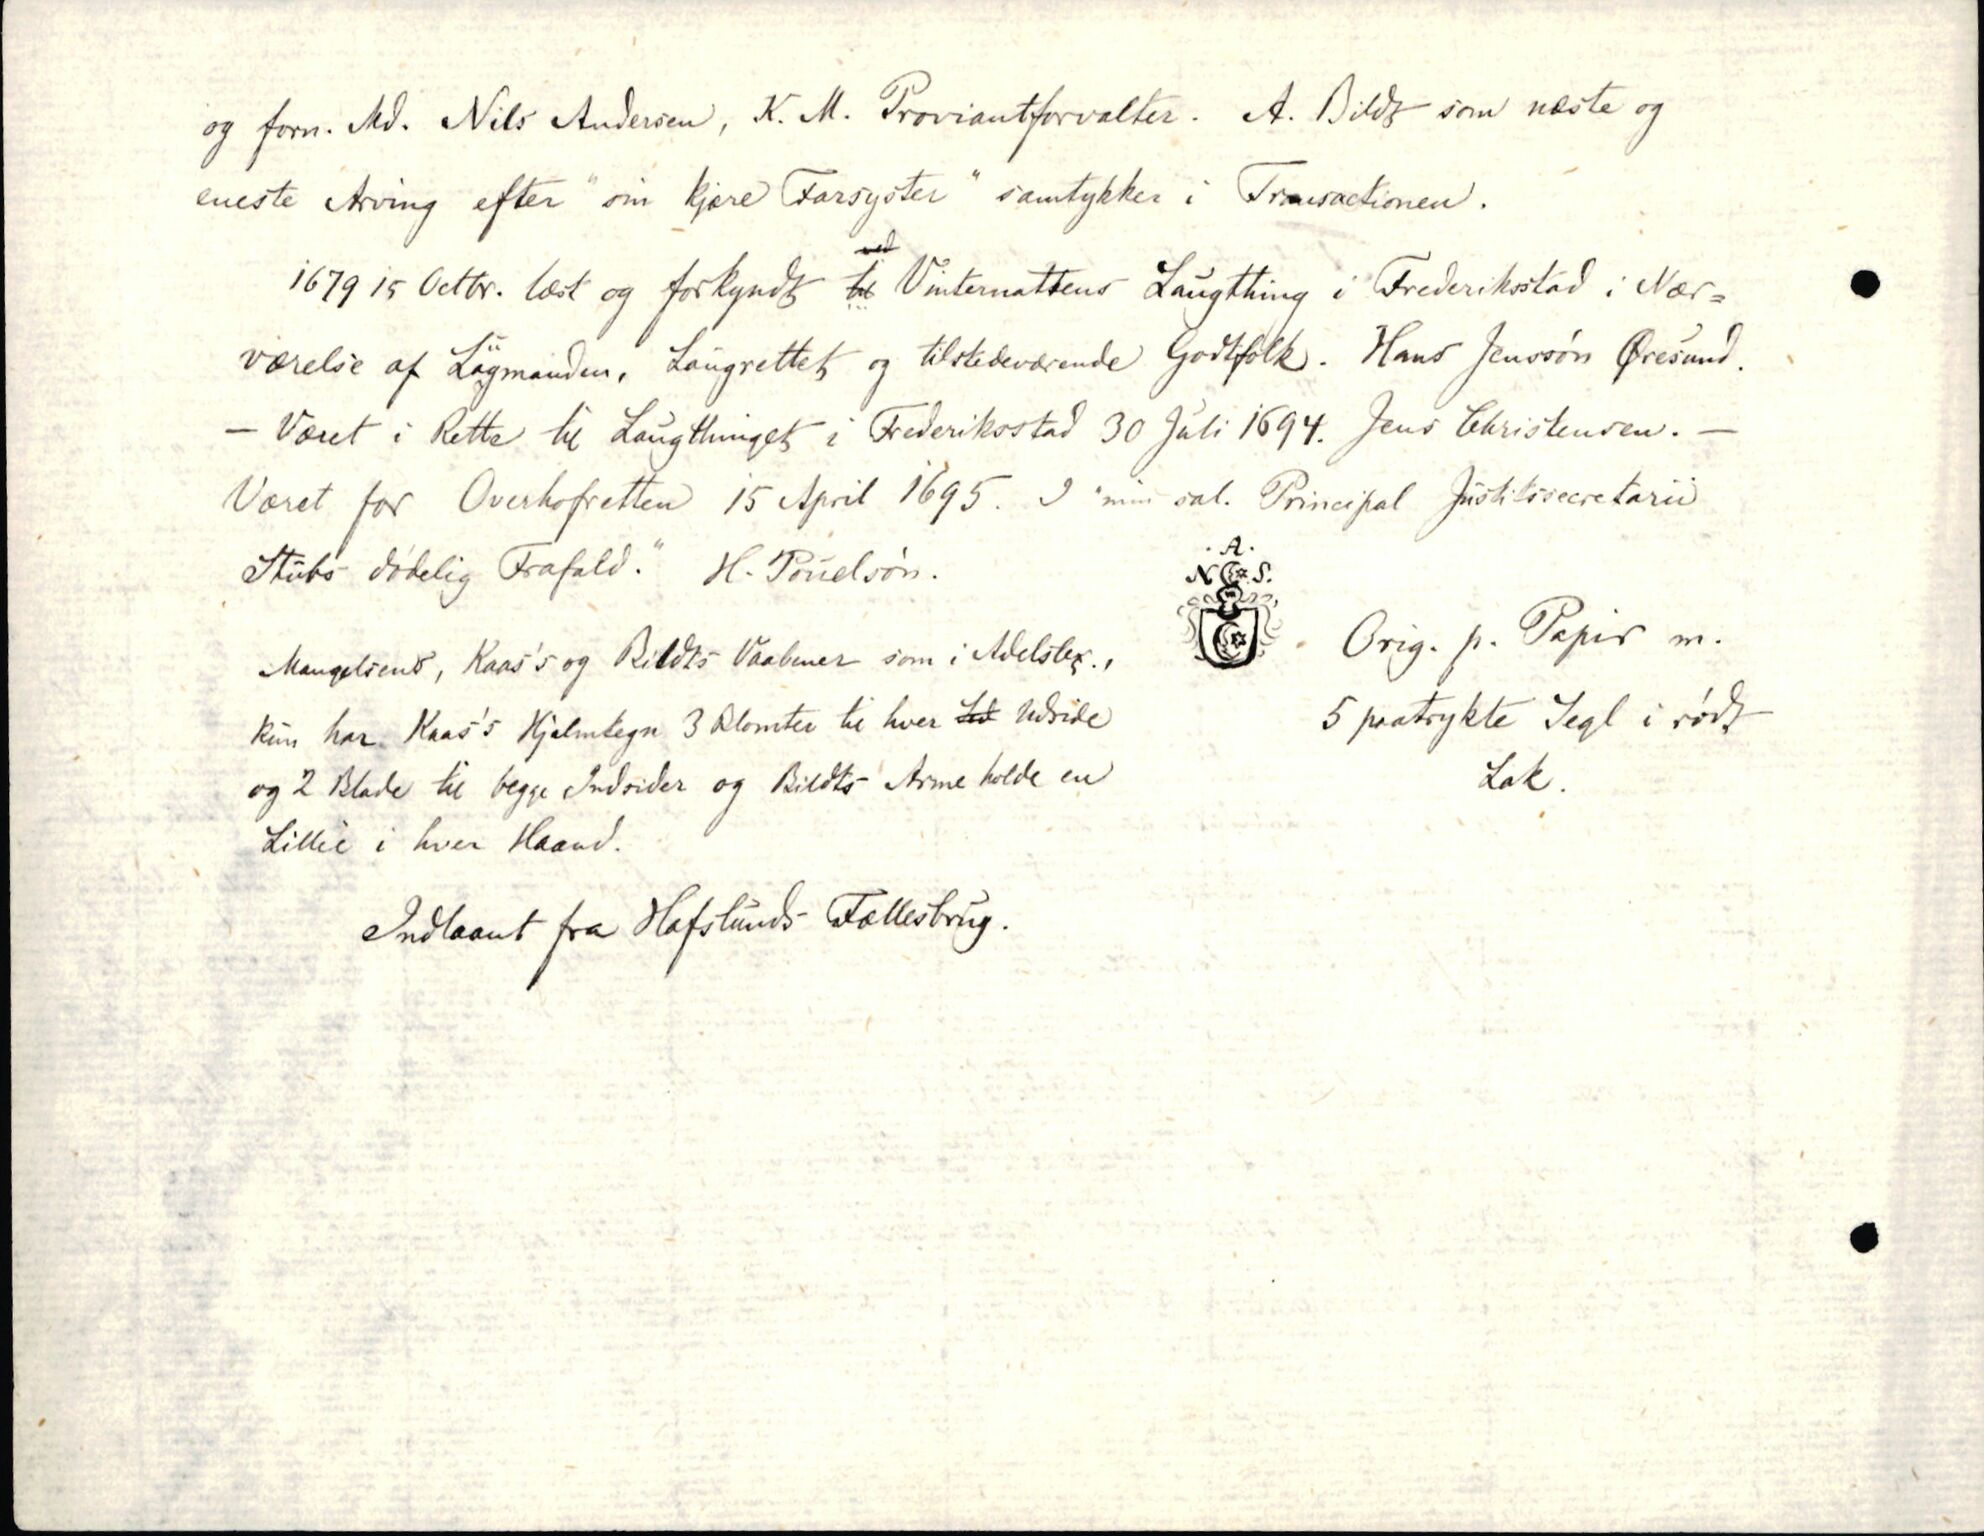 og forn. Md. Nils Andersen, K. M. Proviantforvalter. A. Bildt som næste og
eneste Arving efter "sin kjære Farsyster" samtykker i Transactionen.
1679 15 Octbr. læst og forkyndt ved Vinternattens Laugthing i Frederiksstad i Nær=
værelse af Lagmanden, Laugrettet og tilstedeværende Godtfolk. Hans Jenssøn Øresund.
— Været i Rette til Laugthinget i Frederiksstad 30 Juli 1694. Jens Christensen. —
Været for Overhofretten 15 April 1695. I "min sal. Principal Justitssecretarii
Stubs dødelig Frafald." H. Pouelsøn.
· A ·
N S.
Mangelsens, Kaas's og Bildts Vaabener som i Adelslex.,
kun har Kaas's Hjelmtegn 3 Blomter til hver Udside
og 2 Blade til begge Indsider og Bildts Arme holde en
Lillie i hver Haand.
Orig. p. Papir m.
5 paatrykte Segl i rødt
Lak.
Indlaant fra Hafslunds Fællesbrug.